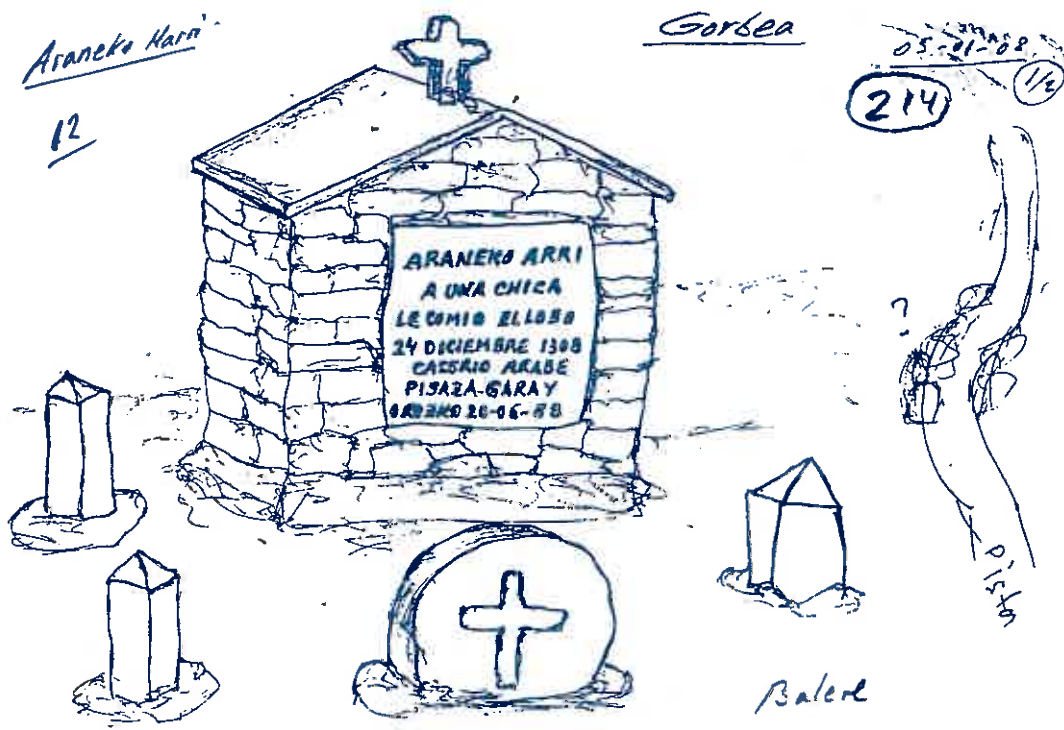 Araneko Harri
12
Gorbea
05-01-08
1/2
214
ARANEKO ARRI
A UNA CHICA
LE COMIO EL LOBO
24 DICIEMBRE 1308
CASERIO ARABE
PISAZA-GARAY
OROZKO 20-06-88
?
Pista